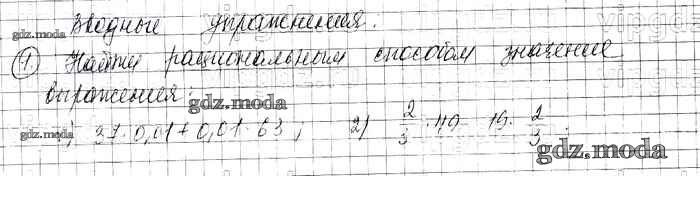 Вводные упражнения.
1. Найти рациональным способом значение
выражения:
1) 37·0,01+0,01·63; 2) 2/3·49 - 19·2/3.
gdz.moda
gdz.moda
gdz.moda
gdz.moda